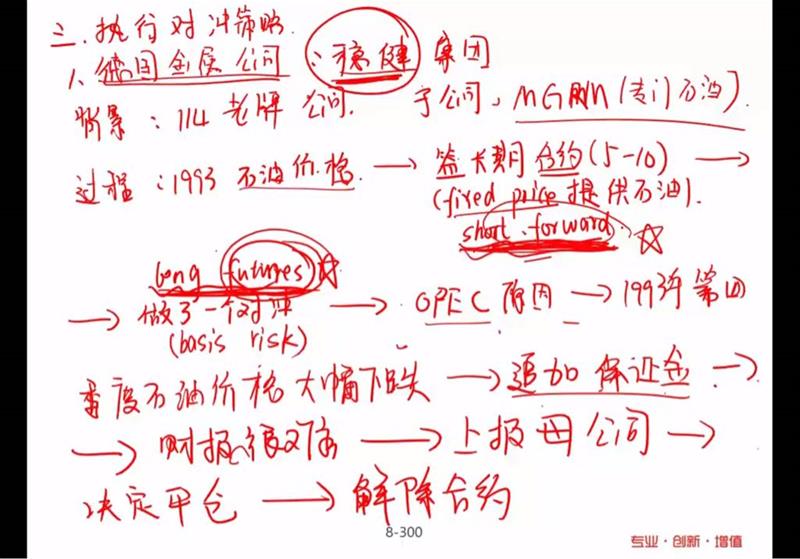 三. 执行对冲策略
1. 德国金属公司 : 稳健 集团
背景 : 114 老牌 公司. 子公司. MGRM (专门石油).
过程 : 1993 石油价格 → 签长期合约 (5-10) →
(fixed price 提供石油).
short forward. ☆
long futures ☆
→ 做了一个对冲 → OPEC 原因 → 1993年 第四
(basis risk)
季度石油价格大幅下跌 → 追加 保证金 →
→ 财报很难看 → 上报 母公司 →
决定平仓 → 解除合约
8-300
专业·创新·增值